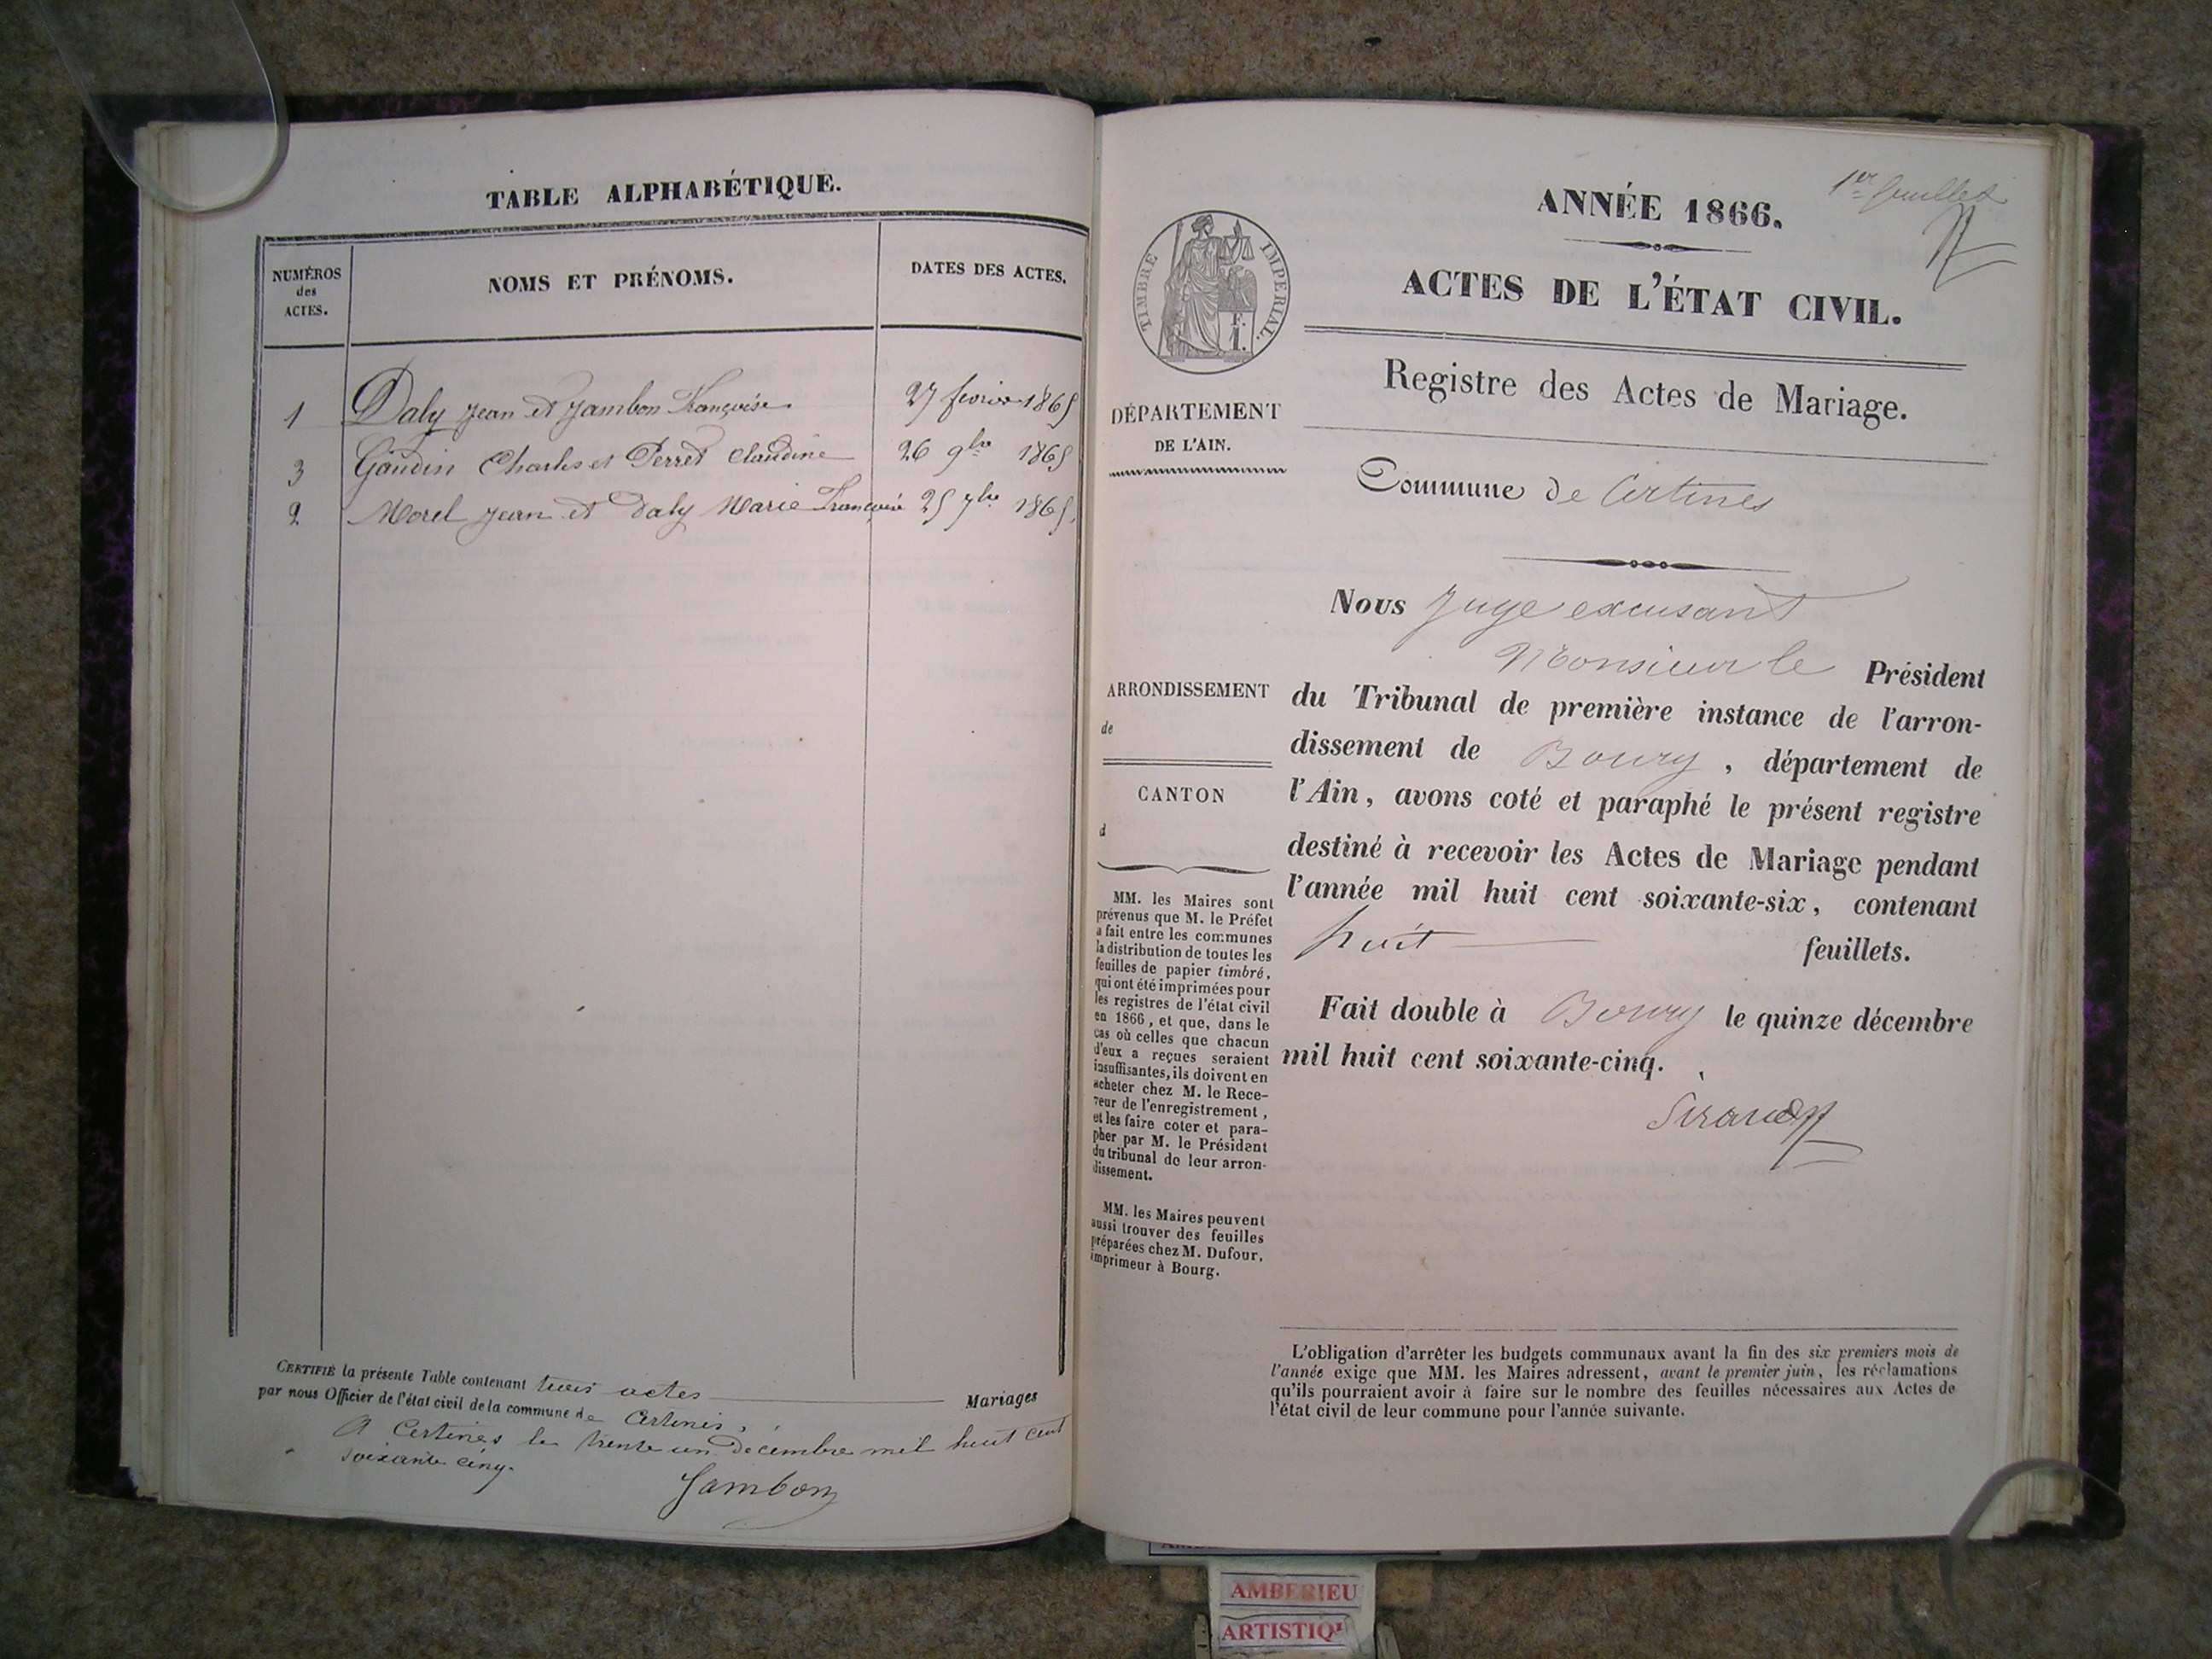 TABLE ALPHABÉTIQUE.
NUMÉROS
des
ACTES.
NOMS ET PRÉNOMS.
DATES DES ACTES.
1 Daly Jean et Jambon Françoise 27 février 1865
3 Gaudin Charles et Perret Claudine 26 9bre 1865
2 Morel Jean et Daly Marie Françoise 25 7bre 1865.
CERTIFIÉ la présente Table contenant trois actes Mariages
par nous Officier de l'état civil de la commune de Certines,
A Certines le trente un décembre mil huit cent
soixante cinq.
Jambon
1er feuillet
ANNÉE 1866.
ACTES DE L'ÉTAT CIVIL.
TIMBRE IMPÉRIAL.
F.
1.
Registre des Actes de Mariage.
DÉPARTEMENT
DE L'AIN.
Commune de Certines
ARRONDISSEMENT
de
CANTON
d
MM. les Maires sont
prévenus que M. le Préfet
a fait entre les communes
la distribution de toutes les
feuilles de papier timbré,
qui ont été imprimées pour
les registres de l'état civil
en 1866, et que, dans le
cas où celles que chacun
d'eux a reçues seraient
insuffisantes, ils doivent en
acheter chez M. le Rece-
veur de l'enregistrement,
et les faire coter et para-
pher par M. le Président
du tribunal de leur arron-
dissement.
MM. les Maires peuvent
aussi trouver des feuilles
préparées chez M. Dufour,
imprimeur à Bourg.
Nous Juge excusant
Monsieur le Président
du Tribunal de première instance de l'arron-
dissement de Bourg, département de
l'Ain, avons coté et paraphé le présent registre
destiné à recevoir les Actes de Mariage pendant
l'année mil huit cent soixante-six, contenant
huit feuillets.
Fait double à Bourg le quinze décembre
mil huit cent soixante-cinq.
L'obligation d'arrêter les budgets communaux avant la fin des six premiers mois de
l'année exige que MM. les Maires adressent, avant le premier juin, les réclamations
qu'ils pourraient avoir à faire sur le nombre des feuilles nécessaires aux Actes de
l'état civil de leur commune pour l'année suivante.
AMBERIEU
ARTISTIQ